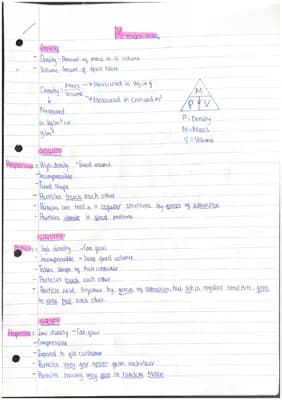 Density
- Density - Amount of mass in a volume
- Volume - Amount of space taken
Density = Mass → Measured in kg or g
Volume → Measured in cm³ and m³
Measured
in kg/m³ or
g/cm³
M
P V
P = Density
M = Mass
V = Volume
SOLIDS
Properties = High density - Fixed volume
- Incompressible
- Fixed shape
- Particles touch each other
- Particles are held in a regular structure by forces of attraction
- Particles vibrate in fixed positions
LIQUIDS
- Incompressible - have fixed volume
- Takes shape of their container
- Particles touch each other
- Particles held together by forces of attraction, but not in regular structure, free
to slide past each other
GASES
Properties = Low density - Can flow
- Compressible
- Expand to fill container
- Particles very far apart from each other
- Particles moving very fast in random motion